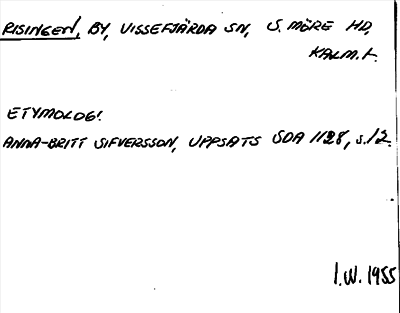 RISINGEN, BY, VISSEFJÄRDA SN, S. MÖRE HD,
KALM. L.
ETYMOLOGI.
ANNA-BRITT SIFVERSSON, UPPSATS SOA 1128, s. 12.
I.W. 1955